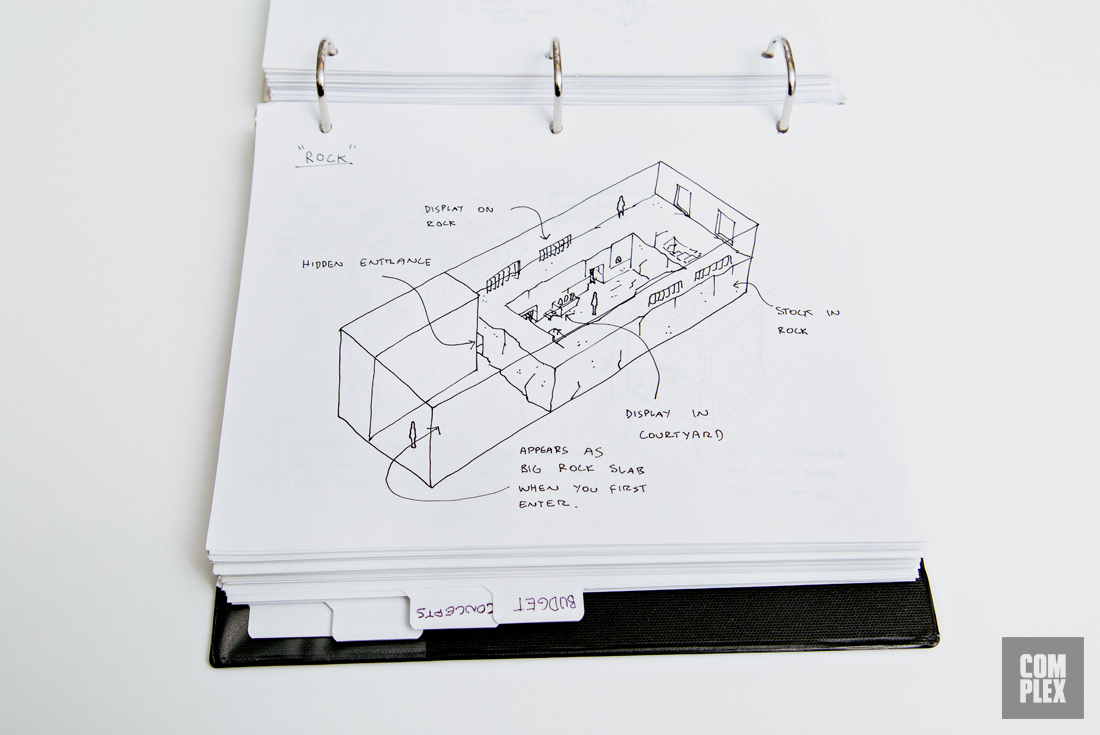 "ROCK"
DISPLAY ON
ROCK
HIDDEN ENTRANCE
STOCK IN
ROCK
DISPLAY IN
COURTYARD
APPEARS AS
BIG ROCK SLAB
WHEN YOU FIRST
ENTER.
CONCEPTS
BUDGET
COM
PLEX